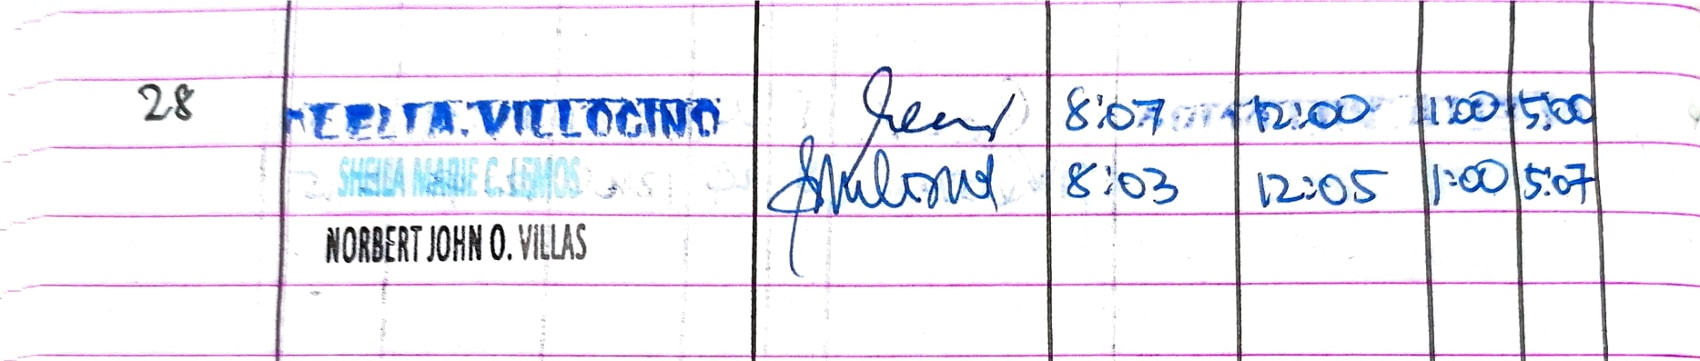 28 A. VILLOCINO 8:07 12:00 1:00 5:00
SHEILA MARIE C. LEMOS 8:03 12:05 1:00 5:07
NORBERT JOHN O. VILLAS